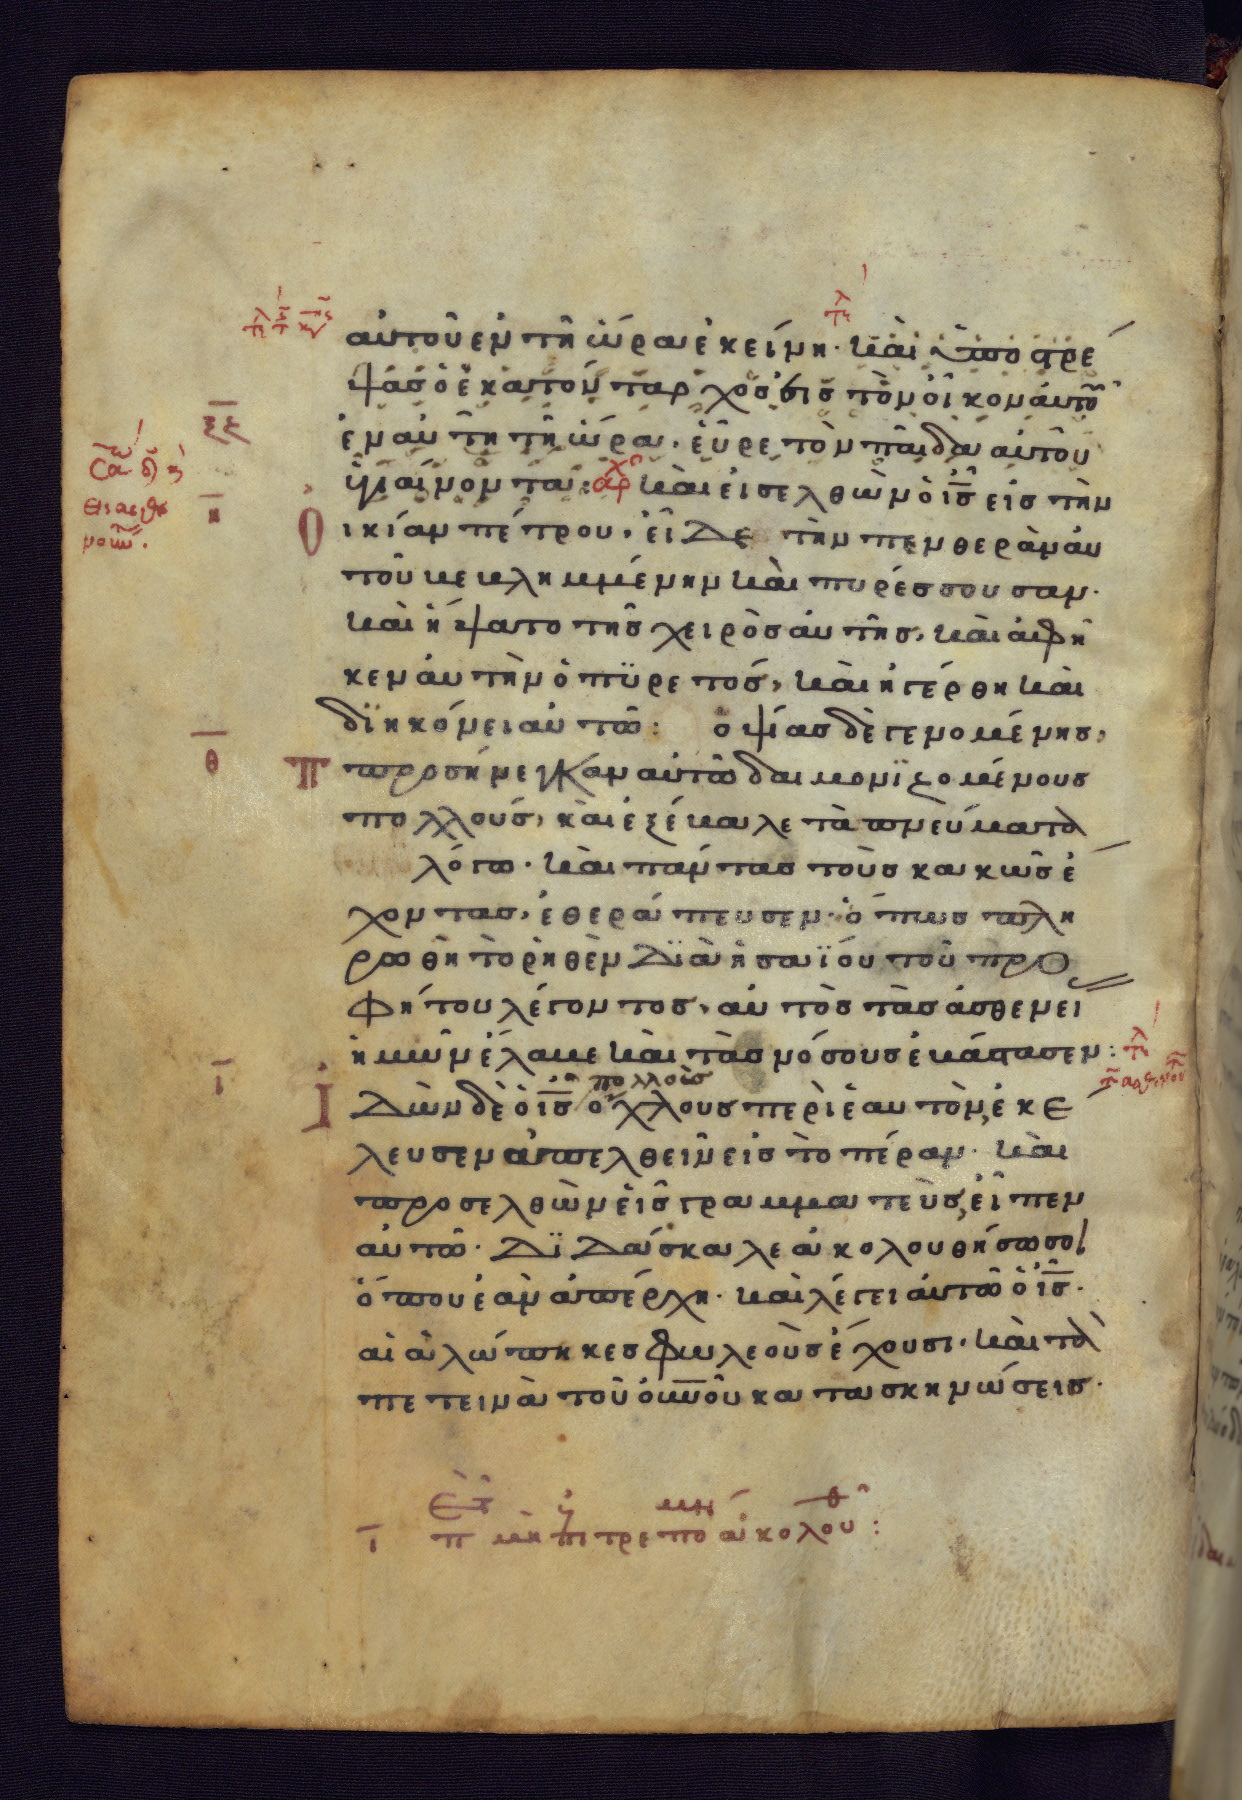 αὐτοῦ ἐν τῆ ὥρα ἐκείνη· καὶ ὑποστρέ
ψας ὁ ἑκατόνταρχος εἰς τὸν οἶκον αὐτοῦ
ἐν αὐτῆ τῆ ὥρα, εὗρε τὸν παῖδα αὐτοῦ
ὑγιαίνοντα: ἀρχ καὶ εἰσελθὼν ὁ ις εἰς τὴν
Οἰκίαν πέτρου, εἶδε τὴν πενθερὰν αὐ
τοῦ κεκλημμένην καὶ πυρέσσουσαν·
καὶ ἥψατο τῆς χειρὸς αὐτῆς, καὶ ἀφῆ
κεν αὐτὴν ὁ πϋρετός, καὶ ἠγέρθη καὶ
δϊηκόνει αὐτῶ: ὀψίας δὲ γενομένης,
Προσήνεγκαν αὐτῶ δαιμονϊζομένους
πολλούς, καὶ ἐξέβαλε τὰ πνεύματα
λόγω· καὶ πάντας τοὺς κακῶς ἔ
χοντας, ἐθεράπευσεν· ὅπως πλη
ρωθῆ τὸ ῥηθὲν δϊὰ ἡσαϊου τοῦ προ
φήτου λέγοντος, αὐτὸς τὰς ἀσθενεί
ἡμῶν ἔλαβε καὶ τὰς νόσους ἐβάστασεν:
Ἰδὼν δὲ ὁ ις πολλοὺς ὄχλους περὶ ἑαυτὸν, ἐκε
λευσεν ἀπελθεῖν εἰς τὸ πέραν· καὶ
προσελθὼν εἷς γραμματεὺς, εἶπεν
αὐτῶ· Δϊδάσκαλε ἀκολουθήσω σοι
ὅπου ἐὰν ἀπέρχη· καὶ λέγει αὐτῶ ὁ ις·
αἱ ἀλώπηκες φωλεοὺς ἔχουσι· καὶ τὰ
πετεινὰ τοῦ οὐνοῦ κατασκηνώσεις·
ξε
η
θ
ι
ι π μὴ πιτρεπο ἀκολου: